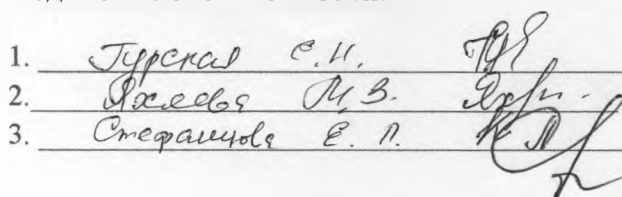 1. Гурская Е.И.
2. Яхлева М.В.
3. Стефанцова Е.П.